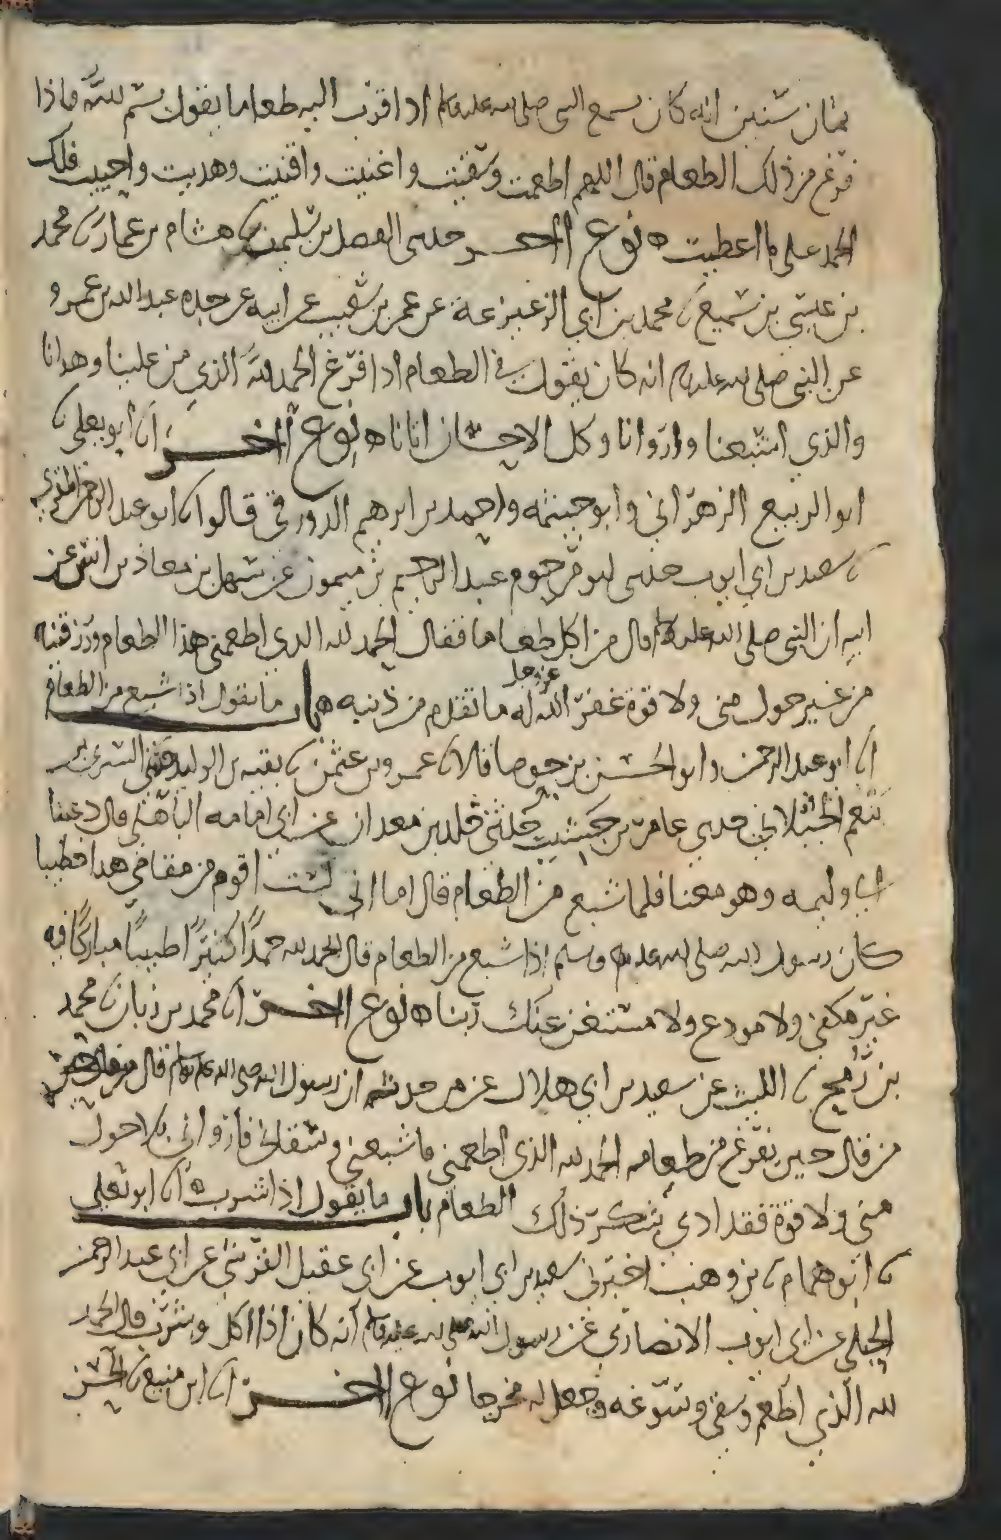 ثمان سنين انه كان يسمع النبي صلى الله عليه وسلم اذا قرب اليه طعاما يقول بسم الله فاذا
فرغ من ذلك الطعام قال اللهم اطعمت وسقيت واغنيت واقنيت وهديت واحييت فلك
الحمد على ما اعطيت ه نوع اخر حدثني الفضل بن سليمن نا هشام بن عمار نا محمد
بن عيسى بن سميع نا محمد بن ابي الزعيزعة عن عمرو بن شعيب عن ابيه عن جده عبد الله بن عمرو
عن النبي صلى الله عليه وسلم انه كان يقول في الطعام اذا فرغ الحمد لله الذي من علينا وهدانا
والذي اشبعنا واروانا وكل الاحسان اتانا ه نوع اخر انا ابو يعلى نا
ابو الربيع الزهراني وابو خيثمه واحمد بن ابرهيم الدورقي قالوا نا ابو عبد الرحمن المقري
نا سعيد بن ابي ايوب حدثني ابو مرحوم عبد الرحيم بن ميمون عن سهل بن معاذ بن انس عن
ابيه ان النبي صلى الله عليه وسلم قال من اكل طعاما فقال الحمد لله الذي اطعمني هذا الطعام ورزقنيه
من غير حول مني ولا قوة غفر الله عز وجل له ما تقدم من ذنبه ه باب ما يقول اذا شبع من الطعام
انا ابو عبد الرحمن وابو الحسن بن جوصا قالا نا عمرو بن عثمن نا بقيه بن الوليد حدثني السري بن
ينعم الجبلاني حدثني عامر بن جشيب حدثني خلد بن معدان عن ابي امامه الباهلي قال دعينا
الى وليمه وهو معنا فلما شبع من الطعام قال اما اني لست اقوم من مقامي هذا خطيبا
كان رسول الله صلى الله عليه وسلم اذا شبع من الطعام قال الحمد لله حمدا كثيرا طيبا مباركا فيه
غير مكفي ولا مودع ولا مستغن عنك ربنا ه نوع اخر انا محمد بن زبان نا محمد
بن رمح نا الليث عن سعيد بن ابي هلال عن من حدثه ان رسول الله صلى الله عليه وسلم قال
من قال حين يفرغ من طعامه الحمد لله الذي اطعمني فاشبعني وسقاني فارواني بلا حول
مني ولا قوة فقد ادى شكر ذلك الطعام باب ما يقول اذا شرب ه انا ابو يعلى
نا ابو همام نا بن وهب اخبرني سعيد بن ابي ايوب عن ابي عقيل القرشي عن ابي عبد الرحمن
الحبلي عن ابي ايوب الانصاري عن رسول الله صلى الله عليه وسلم انه كان اذا اكل وشرب قال الحمد
لله الذي اطعم وسقى وسوغه وجعل له مخرجا نوع اخر انا ابن منيع نا الحسن